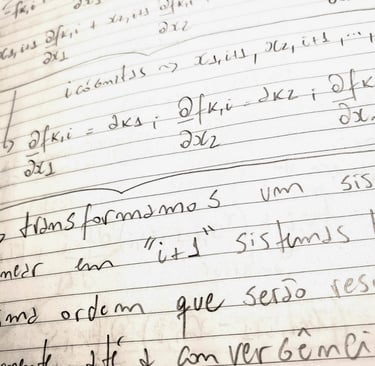 x1,i+1 ∂fk,i/∂x1 + x2,i+1 ∂fk,i/∂x2
incógnitas → x1,i+1, x2,i+1, ...,
∂fk,i/∂x1 = ak1; ∂fk,i/∂x2 = ak2; ∂fk/∂x
transformamos um sis
near em "i+1" sistemas
ma ordem que serão res
mente até a convergênci